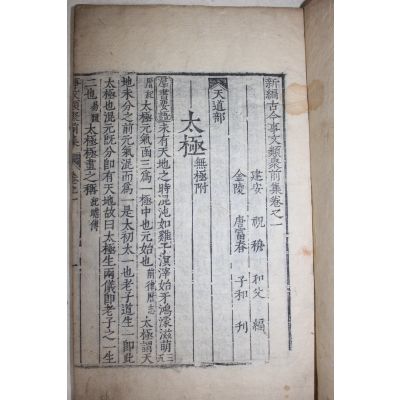 新編古今事文類聚前集卷之一
建安 祝穆 和父 編
金陵 唐富春 子和 刊
天道部
太極 無極附
羣書要語未有天地之時混沌如雞子溟涬始牙鴻濛滋萌三五
曆紀太極元氣函三爲一極中也元始也前律曆志太極謂天
地未分之前元氣混而爲一是太初太一也老子道生一即此
太極也混元既分即有天地故曰太極生兩儀即老子之一生
二也易疏太極極盡之稱
事文類聚前集 卷之一 一